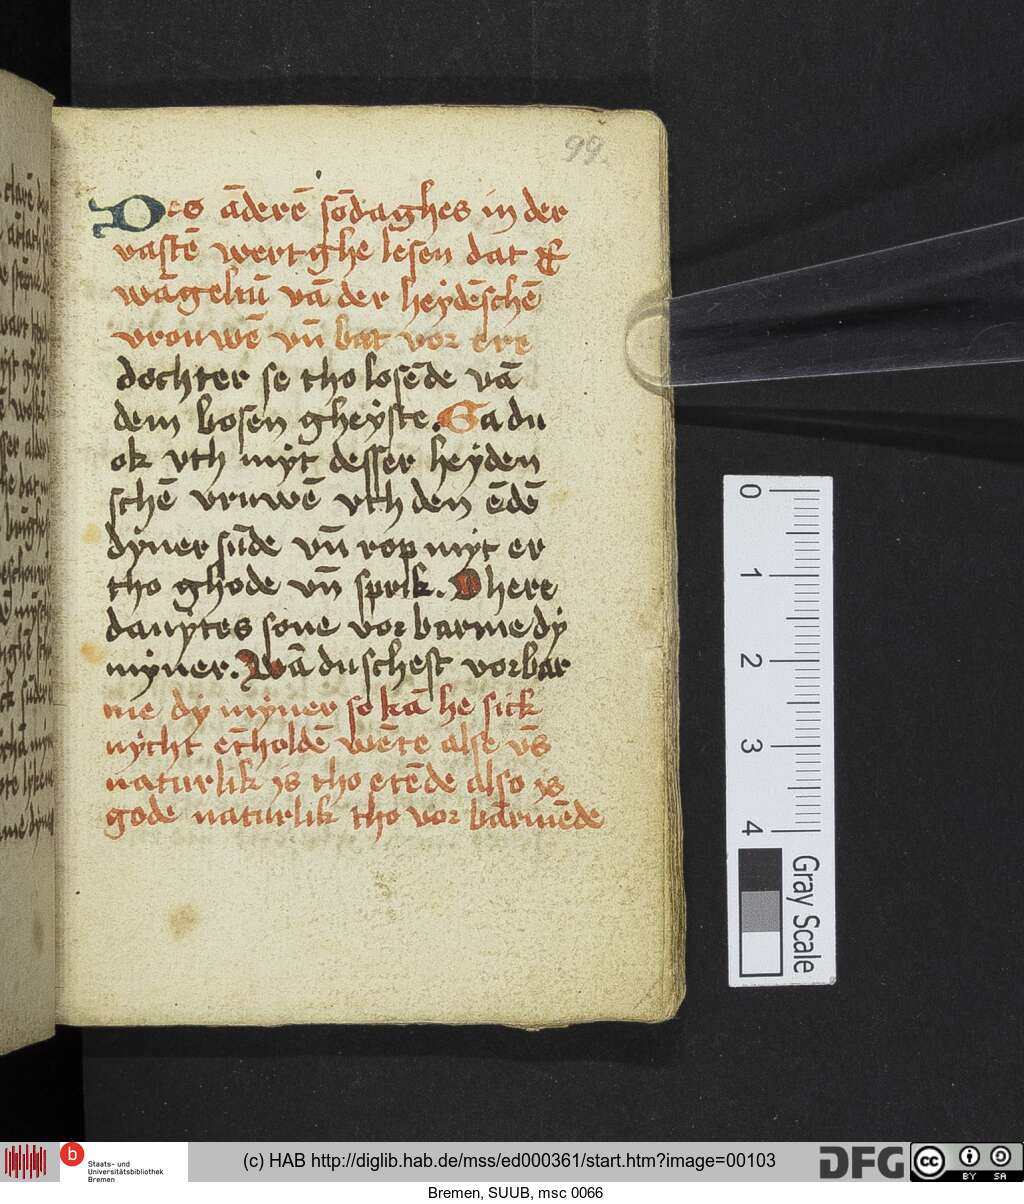 99.
Des āderē sōdaghes in der
vastē wert ghe lesen dat E
wāgeliū vā der heydēschē
vrouwē vn̄ bat vor ere
dochter se tho losēde vā
dem bosen gheyste. Ga du
ok vth myt desser heyden
schē vruwē vth den ēdē
dyner sūde vn̄ rop myt er
tho ghode vn̄ sprik. O here
dauytes sone vor barme dy
myner. Wā du schest vorbar
me dy myner so kā he sick
nycht ētholdē wēte alse vs̄
naturlik is tho etēde also is
gode naturlik tho vor bārmēde
0
1
2
3
4
Gray Scale
b
Staats- und
Universitätsbibliothek
Bremen
(c) HAB http://diglib.hab.de/mss/ed000361/start.htm?image=00103
DFG
cc
BY SA
Bremen, SUUB, msc 0066